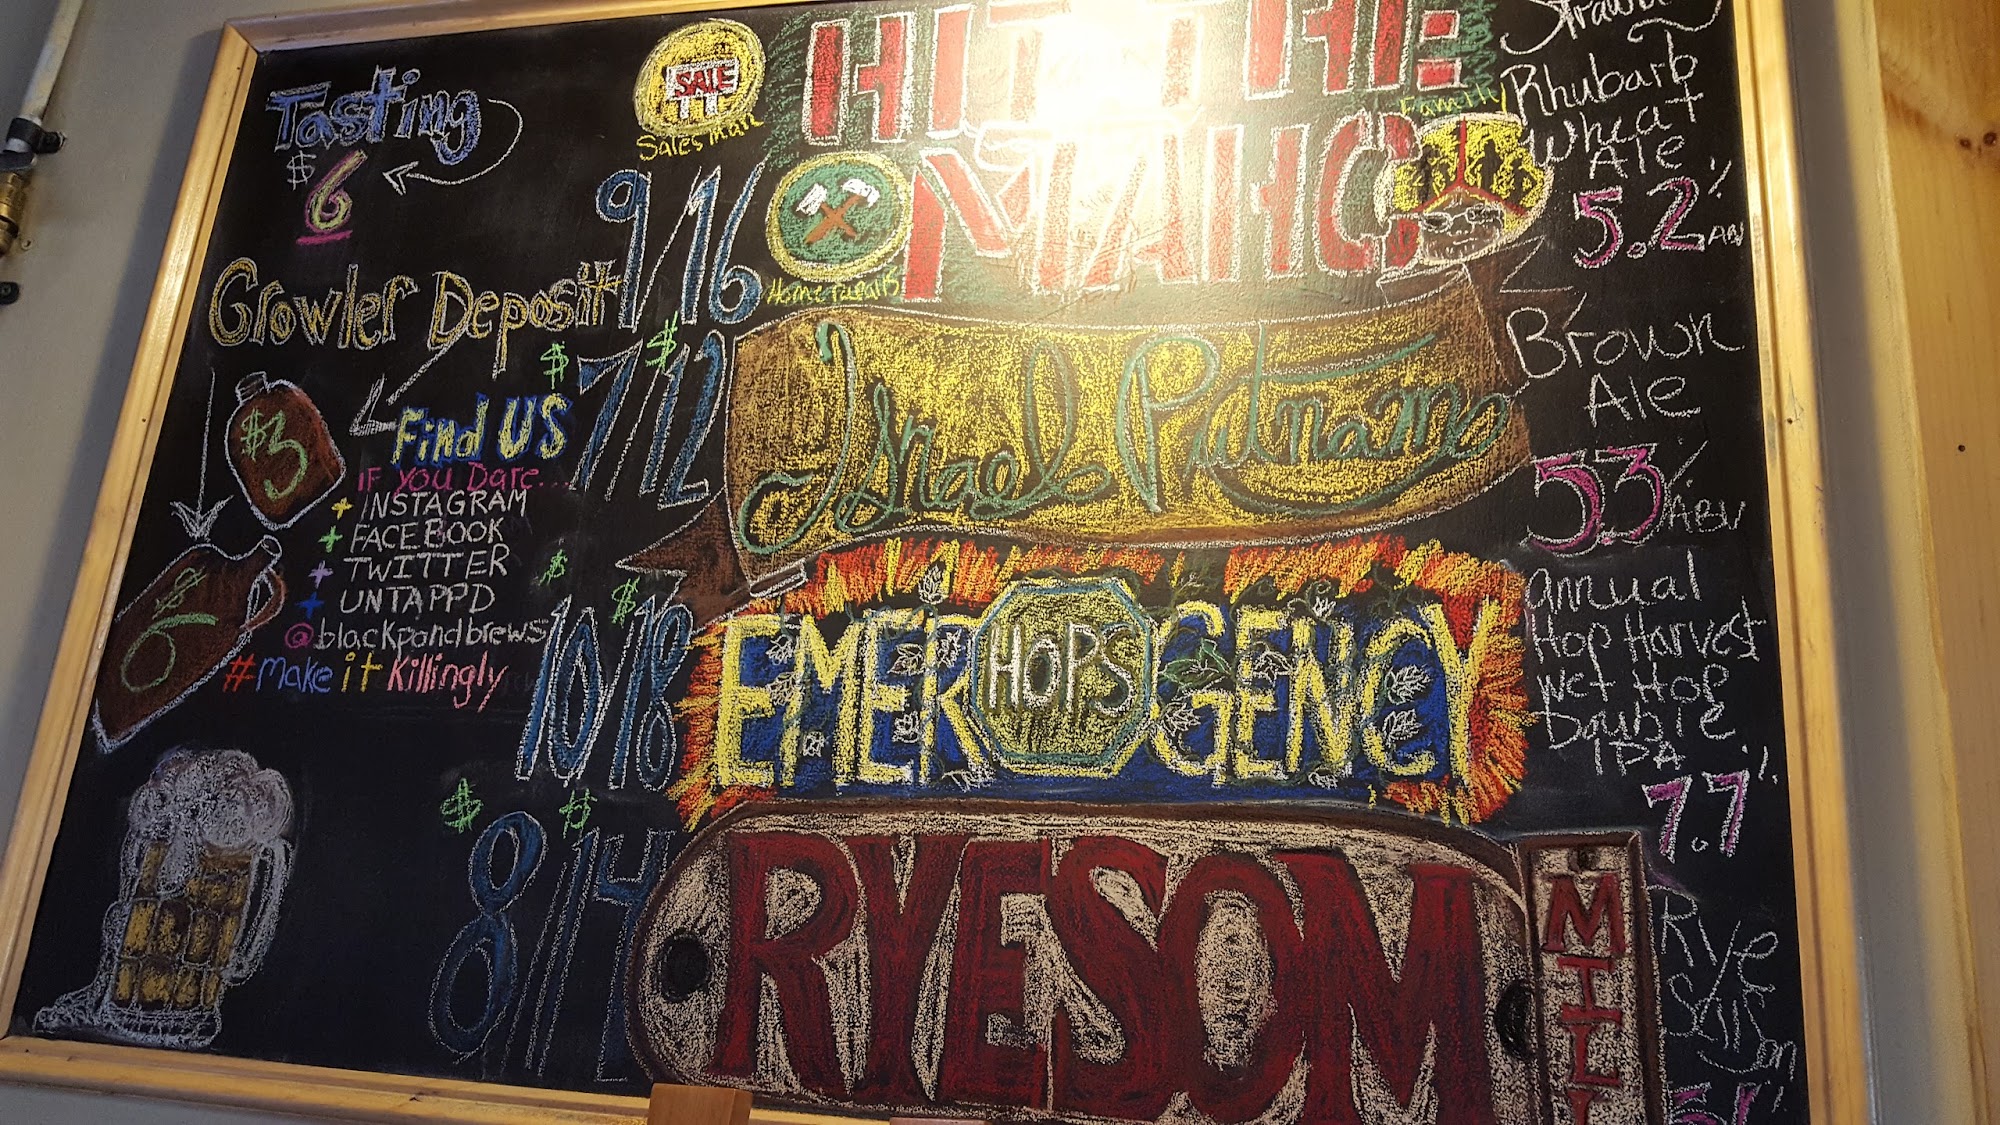 Tasting
$6
Growler Deposit
$3
$6
Find US
IF YOU Dare...
+ INSTAGRAM
+ FACEBOOK
+ TWITTER
+ UNTAPPD
@blackpondbrews
#make it Killingly
SALE
Sales man
HIT THE
MAHO
Family
Home repairs
9/16
Rhubarb
Wheat
Ale
5.2% ABV
$7/$12
Israel Putnam
Brown
Ale
5.3% ABV
$10/$18
EMERGENCY
HOPS
Annual
Hop Harvest
Wet Hop
Double
IPA
7.7%
$8/$14
RYESOM
MILL
Rye
Saison